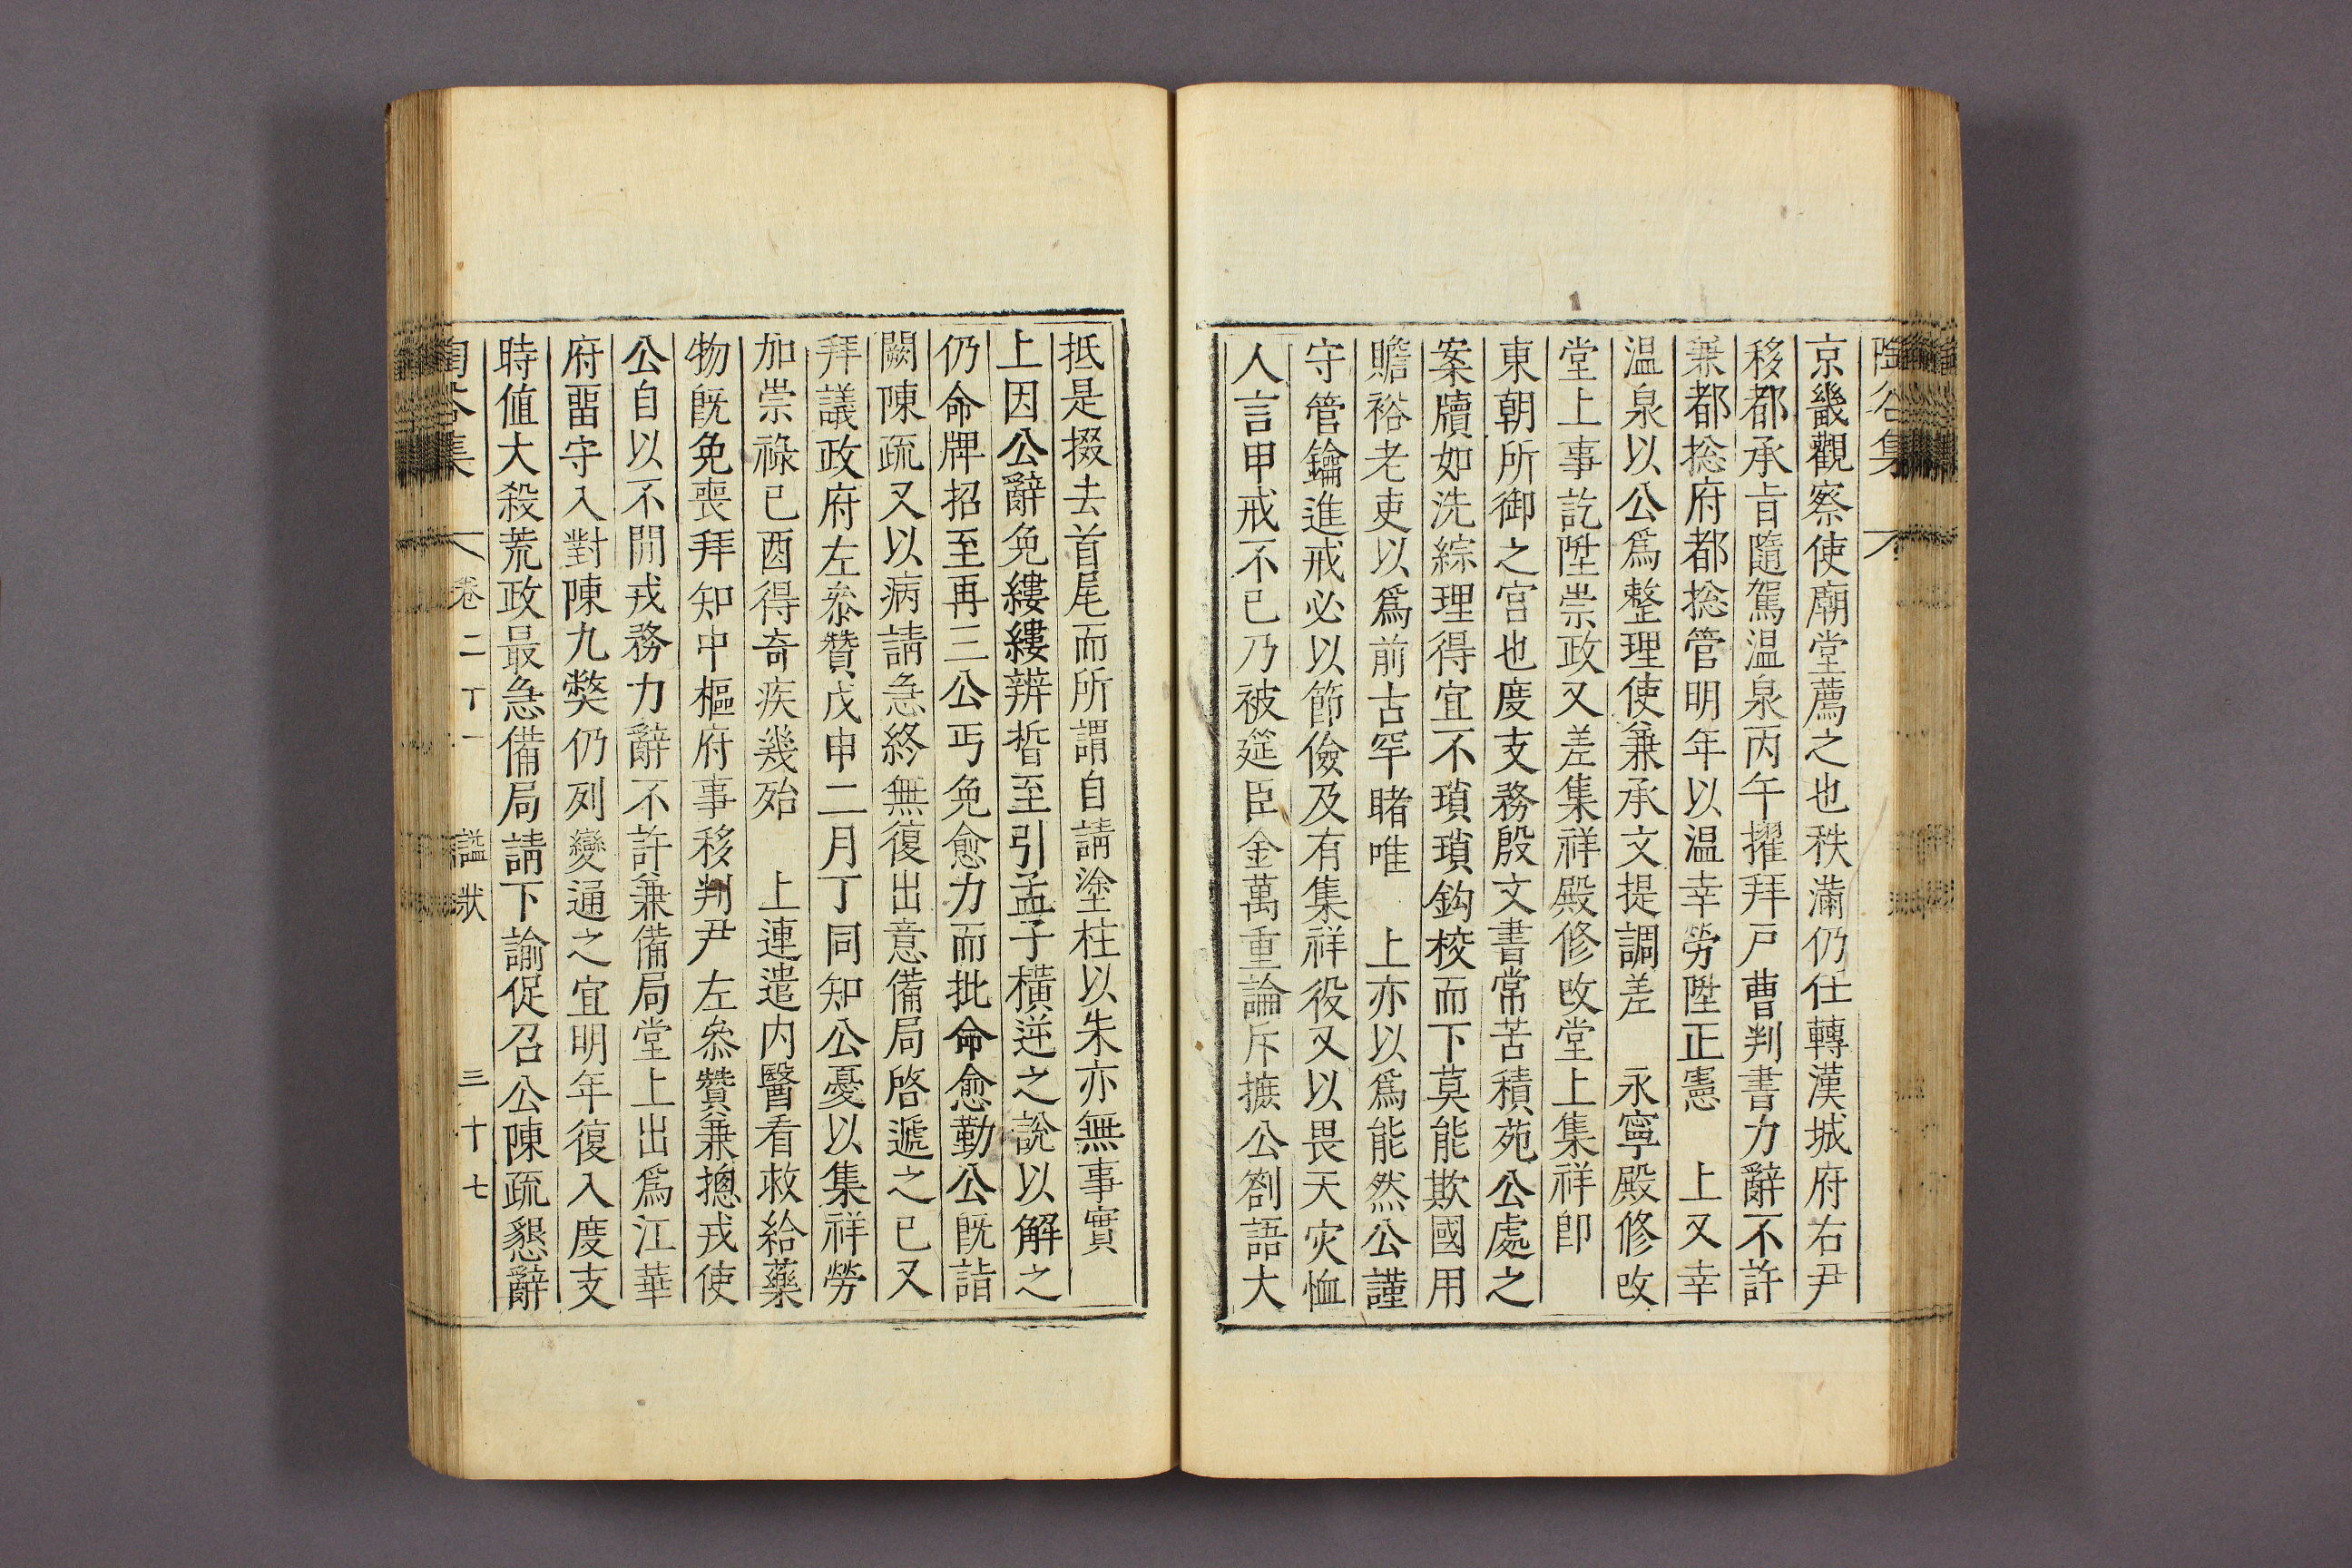 陶谷集
京畿觀察使廟堂薦之也秩滿仍任轉漢城府右尹
移都承旨隨駕温泉丙午擢拜戶曹判書力辭不許
兼都捴府都捴管明年以温幸勞陞正憲 上又幸
温泉以公爲整理使兼承文提調差 永寧殿修改
堂上事訖陞崇政又差集祥殿修改堂上集祥卽
東朝所御之宮也度支務殷文書常苦積苑公處之
案牘如洗綜理得宜不瑣瑣鈎校而下莫能欺國用
贍裕老吏以爲前古罕睹唯 上亦以爲能然公謹
守管鑰進戒必以節儉及有集祥役又以畏天灾恤
人言申戒不已乃被筵臣金萬重論斥摭公劄語大
抵是掇去首尾而所謂自請塗柱以朱亦無事實
上因公辭免縷縷辨晳至引孟子横逆之說以解之
仍命牌招至再三公丐免愈力而批命愈勤公旣詣
闕陳疏又以病請急終無復出意備局啓遞之已又
拜議政府左叅贊戊申二月丁同知公憂以集祥勞
加崇祿已酉得奇疾幾殆 上連遣内醫看救給藥
物旣免喪拜知中樞府事移判尹左叅贊兼摠戎使
公自以不閒戎務力辭不許兼備局堂上出爲江華
府畱守入對陳九獘仍列變通之宜明年復入度支
時值大殺荒政最急備局請下諭促召公陳疏懇辭
陶谷集 卷二丁一 諡狀 三十七